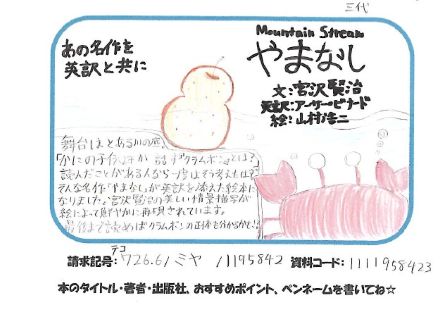 三代
あの名作を
英訳と共に
Mountain Stream
やまなし
文:宮沢賢治
英訳:アーサー・ビナード
絵:山村浩二
舞台はとある川の底。
かにの子供達が話す『クラムボン』とは?
読んだことがある人なら一度はそう考えたはず。
そんな名作『やまなし』が英訳を添えた絵本に
なりました。宮沢賢治の美しい情景描写が
絵によって鮮やかに再現されています。
最後まで読めばクラムボンの正体も分かるかも!
テコ
請求記号: 726.6/ミヤ /11195842 資料コード: 1111958423
本のタイトル・著者・出版社、おすすめポイント、ペンネームを書いてね☆